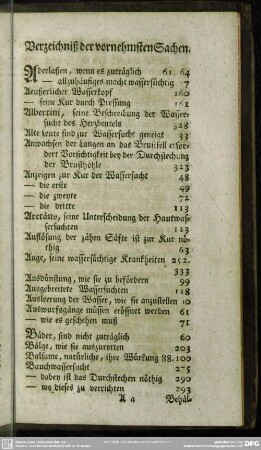 Verzeichniß der vornehmsten Sachen.
Aderlaßen, wenn es zuträglich 61. 64
— allzuhäufiges macht wassersüchtig 7
Aeusserlicher Wasserkopf 160
— seine Kur durch Pressung 161
Albertini, seine Beschreibung der Wasser-
sucht des Herzbeutels 328
Alte Leute sind zur Wassersucht geneigt 33
Anwachsen der Lungen an das Brustfell erfor-
dert Vorsichtigkeit bey der Durchstechung
der Brusthöhle 323
Anzeigen zur Kur der Wassersucht 48
— die erste 49
— die zweyte 72
— die dritte 113
Aretäus, seine Unterscheidung der Hautwas-
sersuchten 113
Auflösung der zähen Säfte ist zur Kur nö-
thig 63
Auge, seine wassersüchtige Krankheiten 252.
333
Ausdünstung, wie sie zu befördern 99
Ausgebreitete Wassersuchten 118
Ausleerung der Wasser, wie sie anzustellen 10
Auswurfsgänge müssen eröffnet werden 61
— wie es geschehen muß 71
Bäder, sind nicht zuträglich 60
Bälge, wie sie auszurotten 203
Balsame, natürliche, ihre Würkung 88. 100
Bauchwassersucht 275
— dabey ist das Durchstechen nöthig 290
— wo dieses zu verrichten 293
A a Behäl-